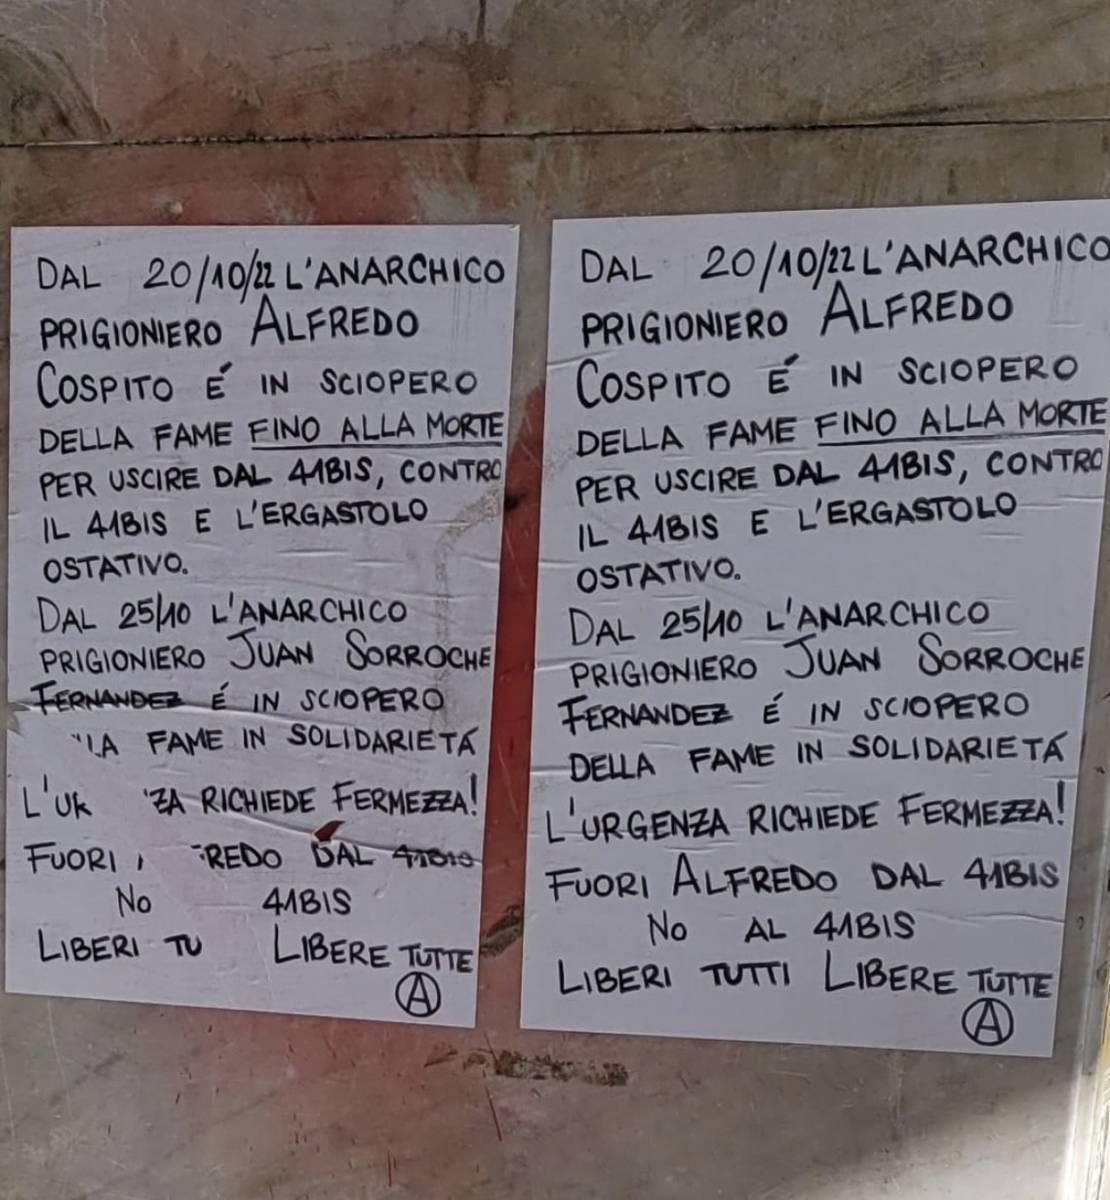 DAL 20/10/22 L'ANARCHICO
PRIGIONIERO ALFREDO
COSPITO É IN SCIOPERO
DELLA FAME FINO ALLA MORTE
PER USCIRE DAL 41BIS, CONTRO
IL 41BIS E L'ERGASTOLO
OSTATIVO.
DAL 25/10 L'ANARCHICO
PRIGIONIERO JUAN SORROCHE
FERNANDEZ É IN SCIOPERO
LA FAME IN SOLIDARIETÁ
L'UR ZA RICHIEDE FERMEZZA!
FUORI REDO DAL 41BIS
NO 41BIS
LIBERI TU LIBERE TUTTE
A
DAL 20/10/22 L'ANARCHICO
PRIGIONIERO ALFREDO
COSPITO É IN SCIOPERO
DELLA FAME FINO ALLA MORTE
PER USCIRE DAL 41BIS, CONTRO
IL 41BIS E L'ERGASTOLO
OSTATIVO.
DAL 25/10 L'ANARCHICO
PRIGIONIERO JUAN SORROCHE
FERNANDEZ É IN SCIOPERO
DELLA FAME IN SOLIDARIETÁ
L'URGENZA RICHIEDE FERMEZZA!
FUORI ALFREDO DAL 41BIS
NO AL 41BIS
LIBERI TUTTI LIBERE TUTTE
A